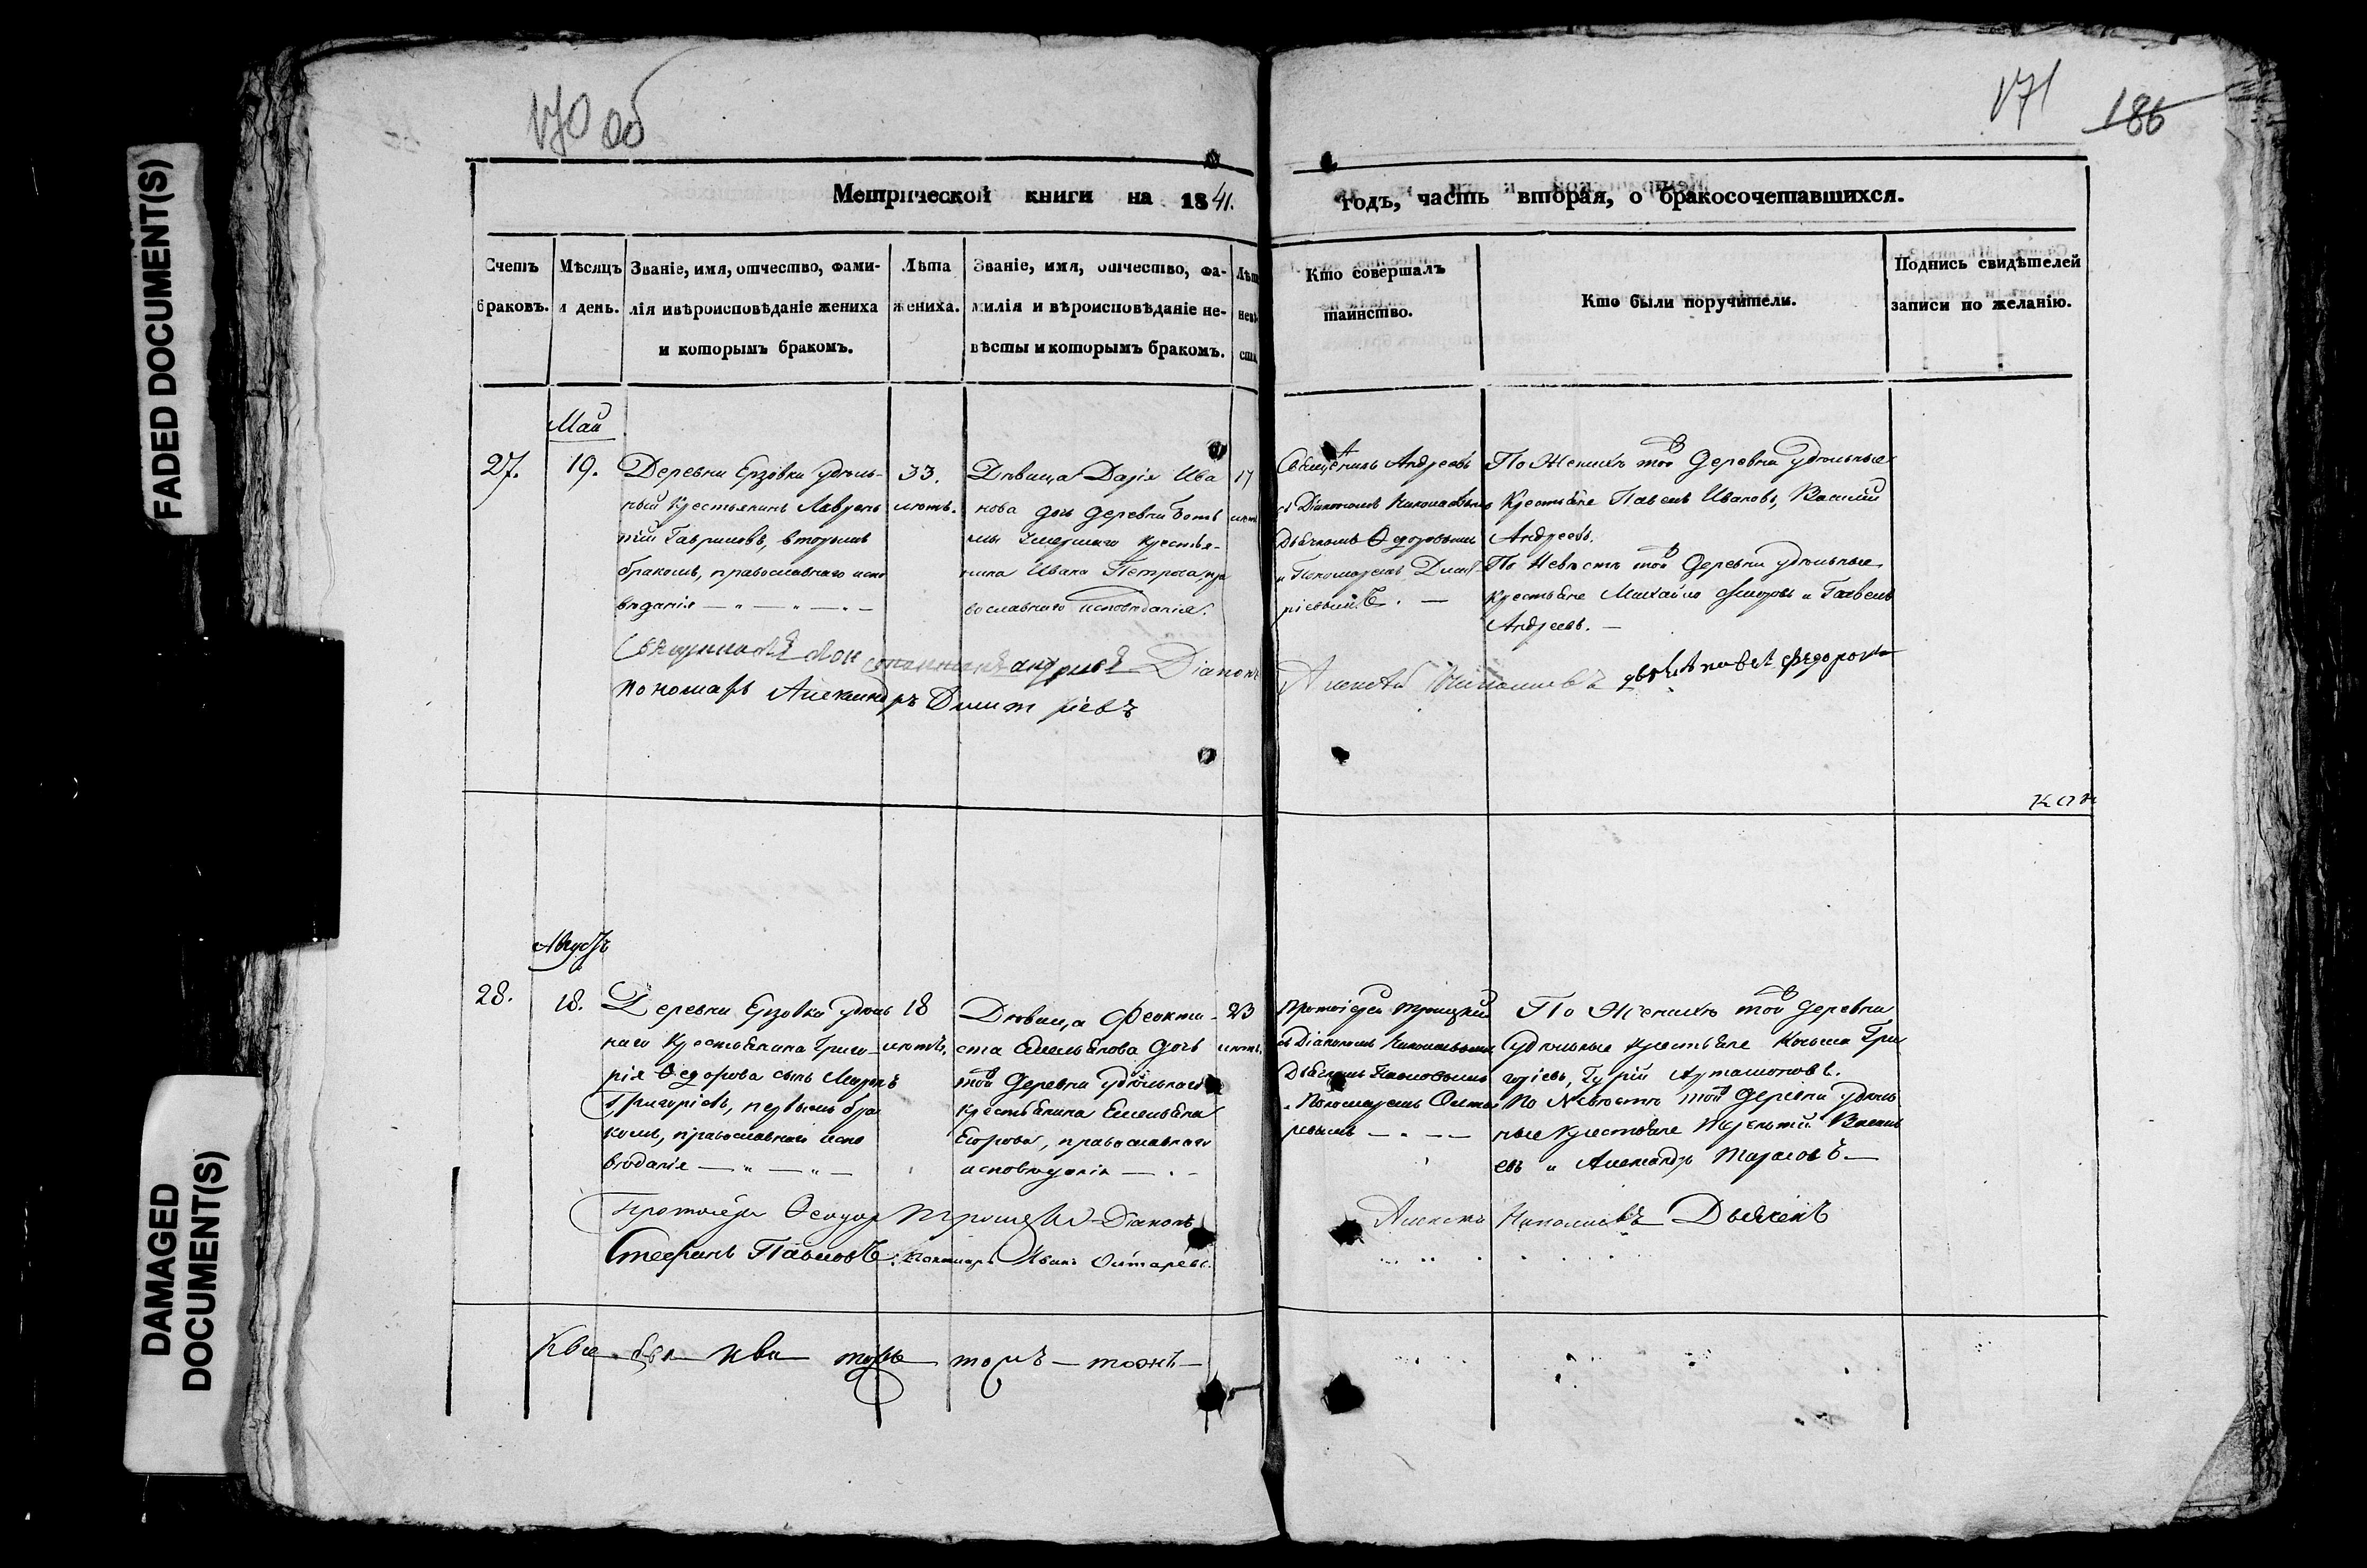 FADED DOCUMENT(S)
DAMAGED
DOCUMENT(S)
170 об
171
186
Метрической книги на 1841.
годъ, часть вторая, о бракосочетавшихся.
Счетъ
браковъ.
Мѣсяцъ
и день.
Званіе, имя, отчество, фами-
лія ивѣроисповѣданіе жениха
и которымъ бракомъ.
Лѣта
жениха.
Званіе, имя, отчество, фа-
милія и вѣроисповѣданіе не-
вѣсты и которымъ бракомъ.
Лѣта
невѣ
сты
Кто совершалъ
таинство.
Кто были поручители.
Подпись свидѣтелей
записи по желанію.
Май
27.
19.
Деревни Ерзовки удѣль-
ный Крестьянинъ Лаврень
тій Гавриловъ, вторымъ
бракомъ, православнаго испо
вѣданія
33.
лѣтъ.
Дѣвица Дарія Ива
нова дочь деревни
умершаго крестья-
нина Ивана Петрова, пра
вославнаго исповѣданія.
17
лѣтъ
Священникъ Андреевъ
съ Діакономъ Николаевымъ
Дьячкомъ Ѳедоровымъ
и Пономаремъ Дмит
ріевымъ.
По Женихѣ той деревни удѣльные
Крестьяне Павелъ Ивановъ, Василій
Андреевъ.
По Невѣстѣ той деревни удѣльные
крестьяне Михайло и Павелъ
Андреевъ.
Священникъ Андреевъ Діаконъ
Алексѣй Николаевъ Федоровъ
пономарь Александръ Дмитріевъ
Августъ
28.
18.
Деревни Ерзовки удѣль
наго Крестьянина Григо-
рія Ѳедорова сынъ
Григоріевъ, первымъ бра
комъ, православнаго испо
вѣданія
18
лѣтъ.
Дѣвица Феокти-
ста Емельянова дочь
той деревни удѣльнаго
крестьянина Емельяна
Егорова, православнаго
исповѣданія
23
лѣтъ.
Протоіерей Троицкій
съ Діакономъ Николаевымъ
Дьячкомъ Павловымъ
и Пономаремъ
По Женихѣ той деревни
Удѣльные крестьяне Козьма Гри
горіевъ, Гурій Артамоновъ.
По Невѣстѣ той деревни удѣль
ные крестьяне
евъ и Александръ Тарасовъ
Протоіерей Ѳеодоръ Троицкій Діаконъ
Алексѣй Николаевъ Дьячекъ
Стефанъ Павловъ. Пономарь Иванъ